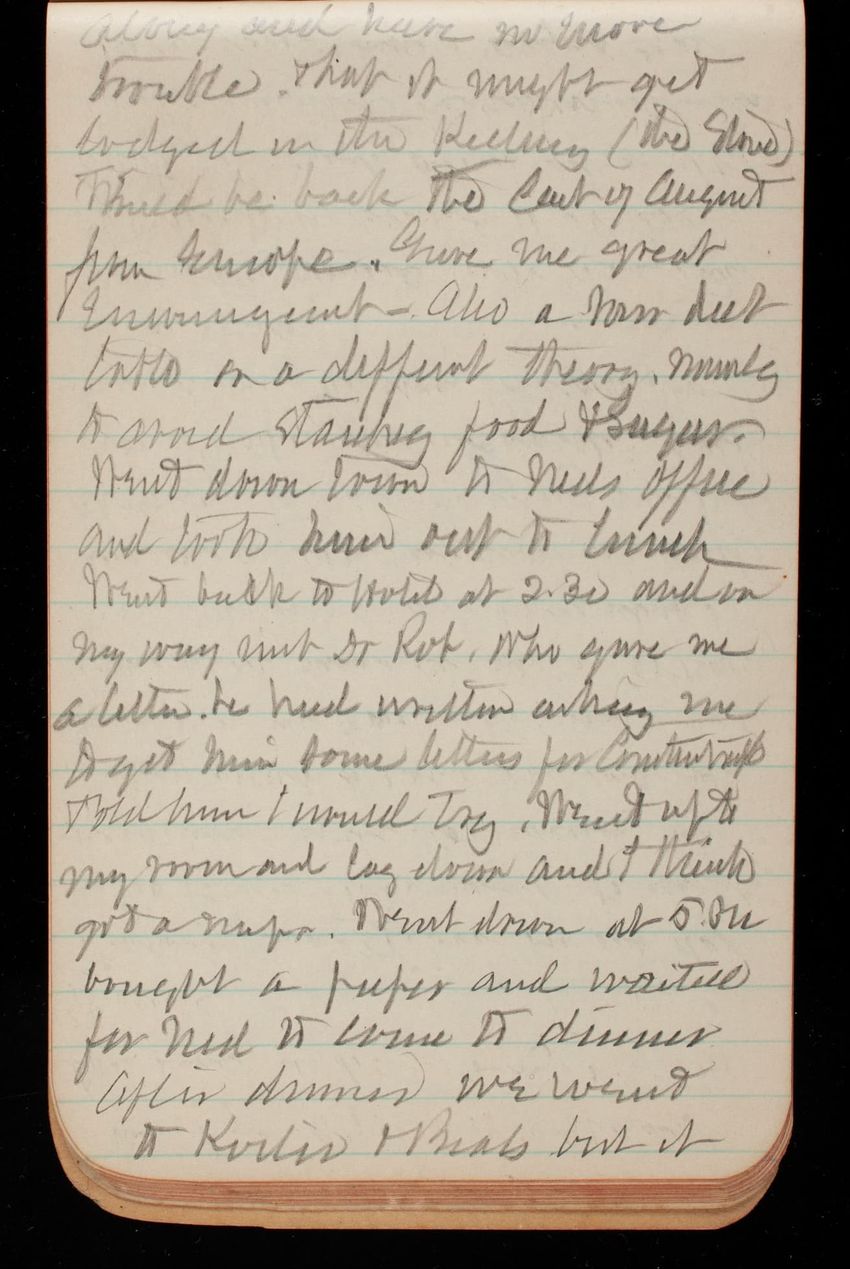 along and have no more
trouble. That it might get
lodged in the Kidney (the Stone)
Would be back the last of August
from Europe. Gave me great
Encouragement - Also a new diet
table on a different theory. namely
to avoid Starchy food & Sugar.
Went down town to Neds office
and took him out to lunch
Went back to Hotel at 2.30 and on
my way met Dr Rob. Who gave me
a letter he had written asking me
to get him some letters for
Told him I would Try. Went up to
my room and lay down and I think
got a nap. Went down at 5.
bought a paper and waited
for Ned to come to dinner
After dinner we went
to Koster & Beals but it